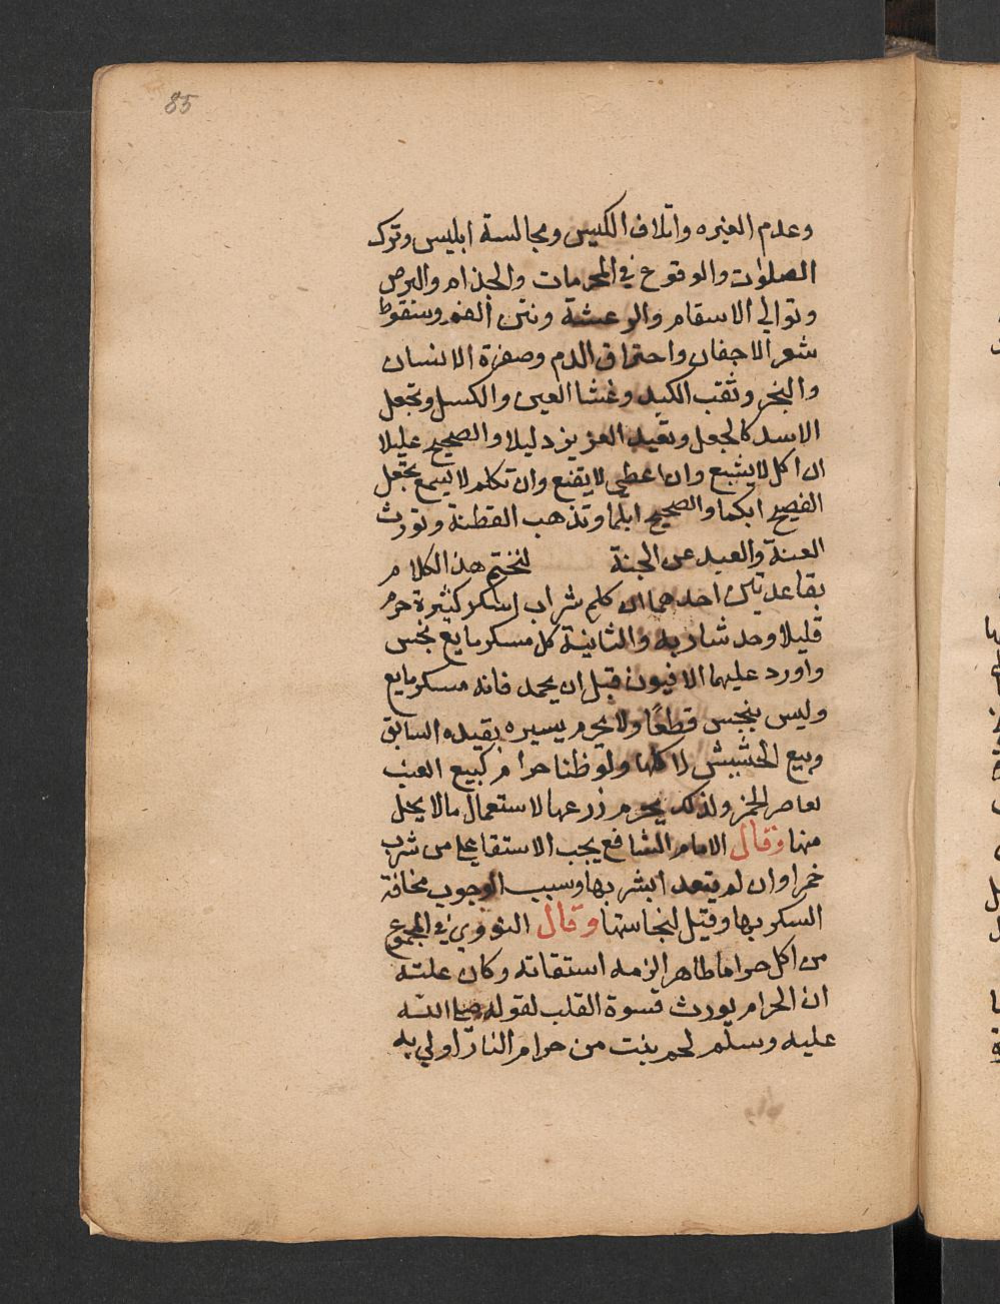 85
وعدم الغيره واتلاف الكيس ومجالسة ابليس وترك
الصلوات والوقوع في المحرمات والجذام والبرص
وتوالي الاسقام والرعشة ونتن الفم وسقوط
شعر الاجفان واحتراق الدم وصفرة الاسنان
والبخر وثقب الكبد وغشا العين والكسل وتجعل
الاسد كالجعل وتعيد العزيز ذليلا والصحيح عليلا
ان اكل لا يشبع وان اعطي لا يقنع وان تكلم لا يسمع تجعل
الفصيح ابكما والصحيح ابلما وتذهب الفطنة وتورث
العنة والعبد عن الجنة لنختم هذ الكلام
بقاعدتين احدهما ان كلم شراب اسكر كثيرة حرم
قليلا وحد شاربه والثانية كل مسكر مايع نجس
واورد عليهما الافيون قبل ان يجمد فانه مسكر مايع
وليس بنجس قطعًا ولا يحرم يسيره بقيده السابق
وبيع الحشيش لا كلها ولو ظنا حرام كبيع العنب
لعاصر الخمر ولذلك يحرم زرعها لاستعمال مالا يحل
منها وقال الامام الشافع يجب الاستقا علي من شرب
خمرا وان لم يتعد ابشربها وسبب الوجوب مخافة
السكر بها وقيل لنجاستها وقال النووي في المجموع
من اكل حراما طاهر الزمه استقاته وكان علته
ان الحرام يورث قسوة القلب لقوله صلي الله
عليه وسلم لحم ينت من حرام النار اولي به